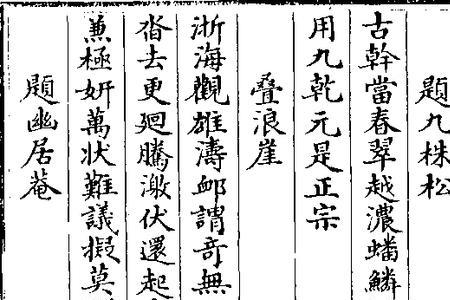 題九株松
古幹當春翠越濃蟠鱗
用九乾元是正宗
疊浪崖
浙海觀雄濤卹謂奇無
沓去更廻騰潡伏還起
兼極妍萬狀難議擬莫
題幽居菴